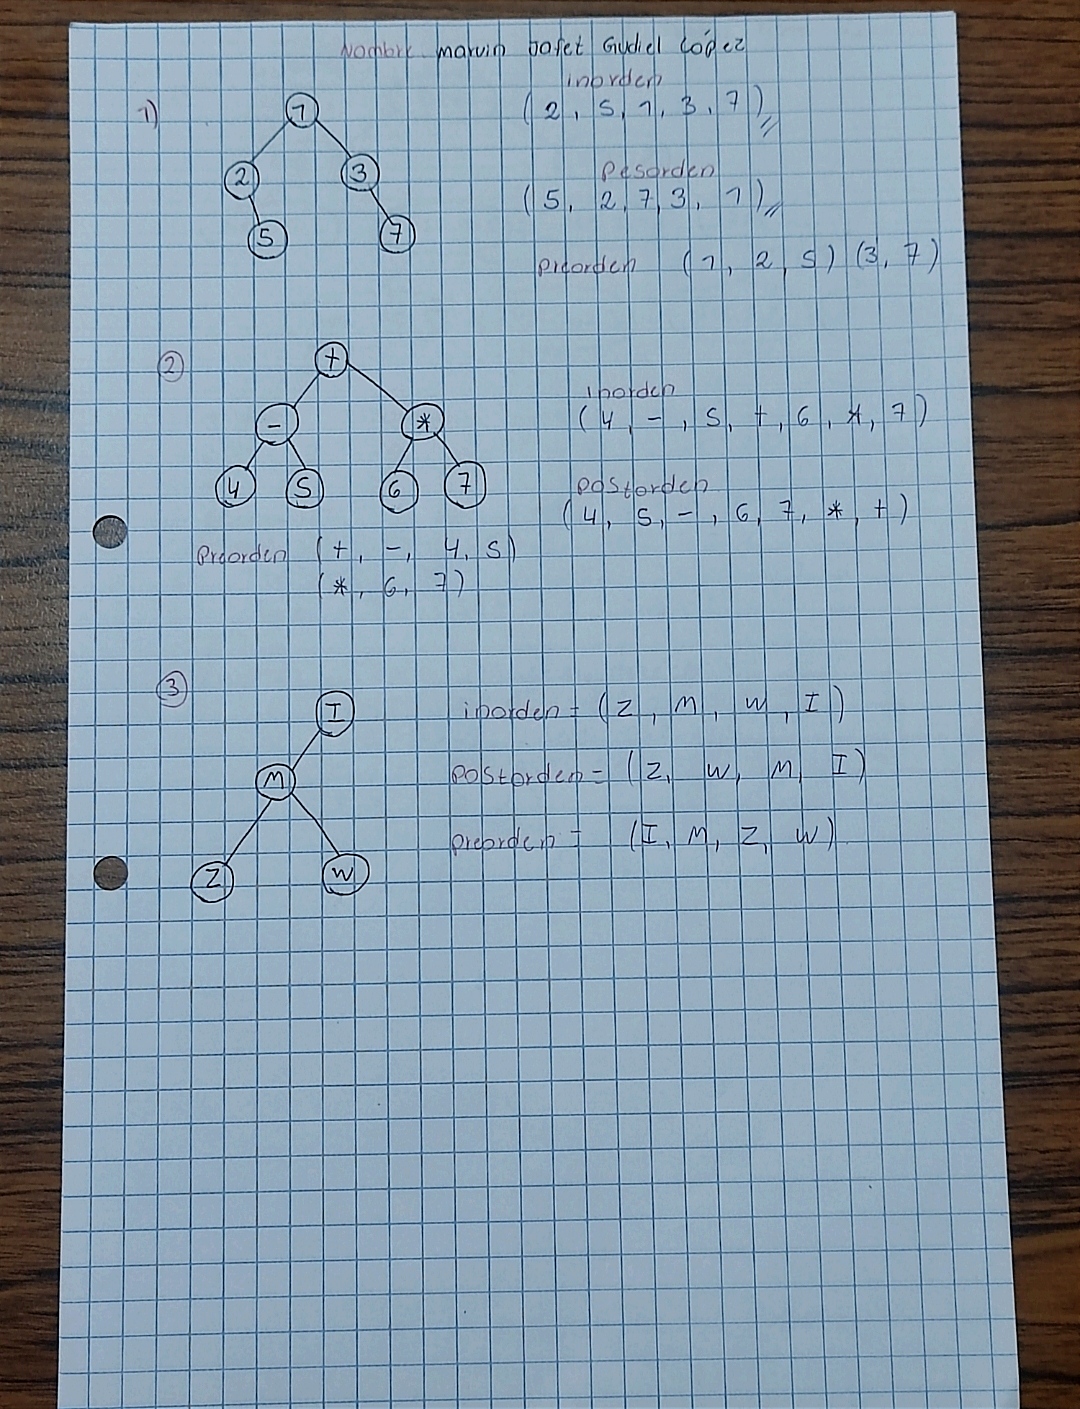 Nombre marvin Jofet Gudiel López
1)
inorden
(2, 5, 1, 3, 7)
1
2
3
5
7
Posorden
(5, 2, 7, 3, 1)
preorden (1, 2, 5) (3, 7)
2
+
-
*
4
5
6
7
inorden
(4, -, 5, +, 6, *, 7)
postorden
(4, 5, -, 6, 7, *, +)
Preorden (+, -, 4, 5)
(*, 6, 7)
3
I
M
Z
W
inorden = (Z, M, W, I)
Postorden = (Z, W, M, I)
preorden = (I, M, Z, W)